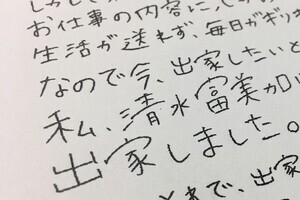 お仕事の内容に
生活が送れず、毎日がギリ
なので今、出家したいと
私、清水富美加
出家しました。
で、出家